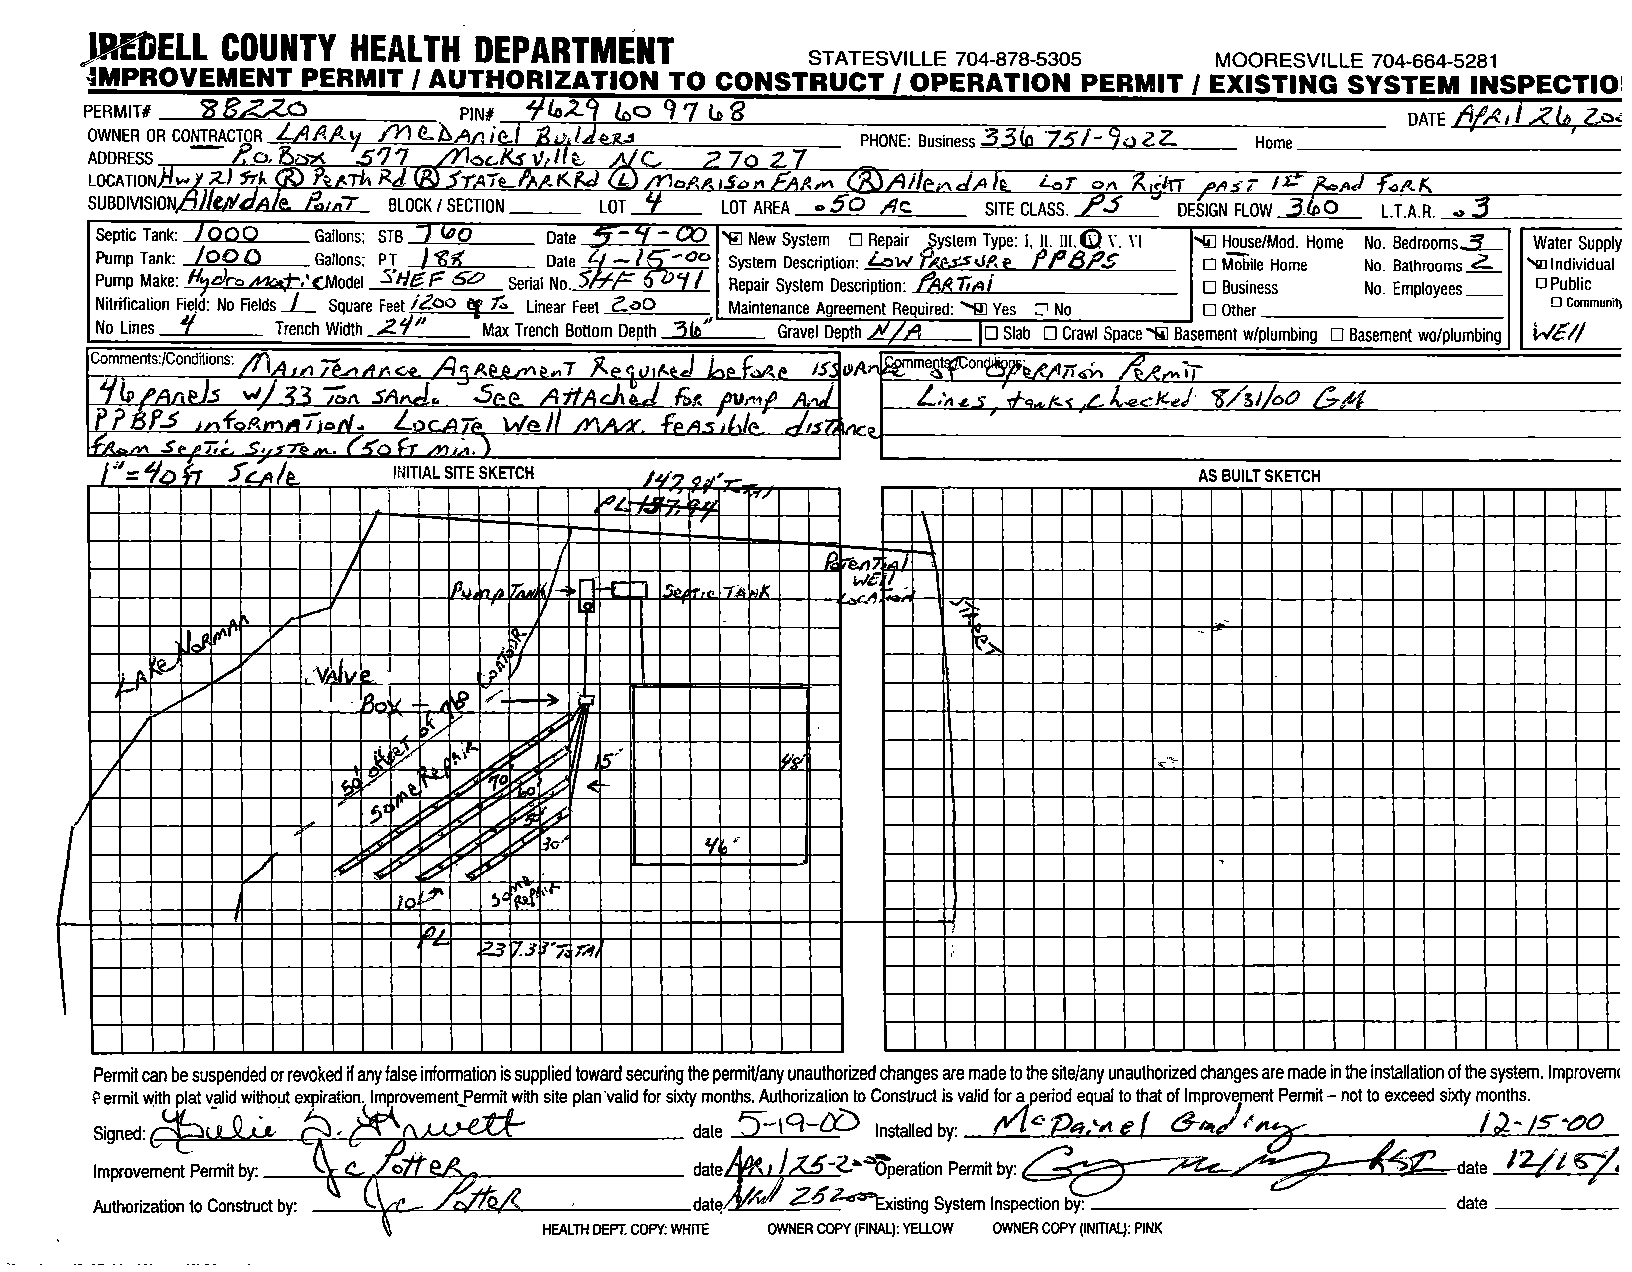 IREDELL COUNTY HEALTH DEPARTMENT STATESVILLE 704-878-5305 MOORESVILLE 704-664-5281
IMPROVEMENT PERMIT / AUTHORIZATION TO CONSTRUCT / OPERATION PERMIT / EXISTING SYSTEM INSPECTIO
PERMIT# 88220 PIN# 4629 60 9768 DATE April 26, 200
OWNER OR CONTRACTOR LARRY McDaniel Builders PHONE: Business 336 751-9022 Home
ADDRESS P.O. Box 577 Mocksville NC 27027
LOCATION Hwy 21 Sth (R) Perth Rd (R) STATE PARK Rd (L) MORRISON FARM (R) Allendale LOT on Right past 1st Road fork
SUBDIVISION Allendale Point BLOCK / SECTION LOT 4 LOT AREA .50 AC SITE CLASS. PS DESIGN FLOW 360 L.T.A.R. .3
Septic Tank: 1000 Gallons; STB 760 Date 5-4-00 New System Repair System Type: I, II. III. IV V. VI House/Mod. Home No. Bedrooms 3 Water Supply
Pump Tank: 1000 Gallons; PT 188 Date 4-15-00 System Description: Low Pressure PPBPS Mobile Home No. Bathrooms 2 Individual
Pump Make: Hydromatic Model SHEF 50 Serial No. SHF 5041 Repair System Description: PARTIAl Business No. Employees Public
Nitrification Field: No Fields 1 Square Feet 1200 Linear Feet 200 Maintenance Agreement Required: Yes No Other Community
No Lines 4 Trench Width 24" Max Trench Bottom Depth 36" Gravel Depth N/A Slab Crawl Space Basement w/plumbing Basement wo/plumbing WEll
Comments:/Conditions: MAINTENANCE AgREEMENT Required before ISSUANCE of OPERATION PERMIT
Comments/Conditions:
46 panels w/ 33 Ton SAND. See ATTAched for pump And
Lines, tanks, checked 8/31/00 GM
PPBPS information. LOCATE Well MAX. feasible distance
from Septic System. (50ft min.)
1"=40ft Scale INITIAL SITE SKETCH AS BUILT SKETCH
147.94' Total
PL 137.94
POTENTIAL
WEll
LOCATION
Pump TANK SEPTIC TANK
STREET
LAKE NORMAN
VALVE
Box
50' offset of 760 CONTOUR
Some Repair
15'
48'
70'
60'
30'
46'
10'
Some
Repair
PL
237.33' TOTAl
Permit can be suspended or revoked if any false information is supplied toward securing the permit/any unauthorized changes are made to the site/any unauthorized changes are made in the installation of the system. Improveme
Permit with plat valid without expiration. Improvement Permit with site plan valid for sixty months. Authorization to Construct is valid for a period equal to that of Improvement Permit – not to exceed sixty months.
Signed: date 5-19-00 Installed by: McDainel Grading 12-15-00
Improvement Permit by: JC Potter date April 25-2000 Operation Permit by: date 12/15/
Authorization to Construct by: JC Potter date April 25 2000 Existing System Inspection by: date
HEALTH DEPT. COPY: WHITE OWNER COPY (FINAL): YELLOW OWNER COPY (INITIAL): PINK